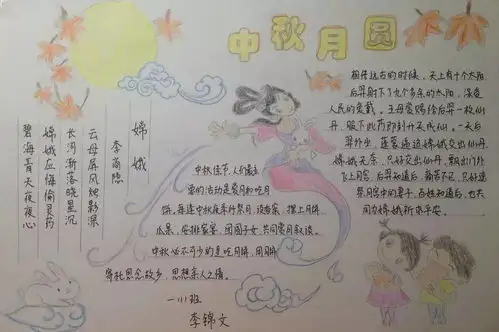 中秋月圆
嫦娥
李商隐
云母屏风烛影深
长河渐落晓星沉
嫦娥应悔偷灵药
碧海青天夜夜心
相传远古的时候，天上有十个太阳
后羿射下了九个多余的太阳，深受
人民的爱戴。王母娘娘给后羿一枚仙
丹，服下此药即刻升天成仙。一天后
羿外出，蓬蒙逼迫嫦娥交出仙丹，
嫦娥无奈，只好交出仙丹，飘出门外
飞上月宫，后羿知道后，痛苦不已，只好遥
祭月宫中的妻子，百姓知道后，也共
同为嫦娥祈求平安。
中秋佳节，人们最主
要的活动是赏月和吃月
饼，每逢中秋夜条件祭月，设香案，摆上月饼
瓜果，安排家宴，团圆子女，共同赏月叙谈。
中秋必不可少的是吃月饼，用月饼
寄托思念故乡，思想亲人之情。
一(1)班
李锦文